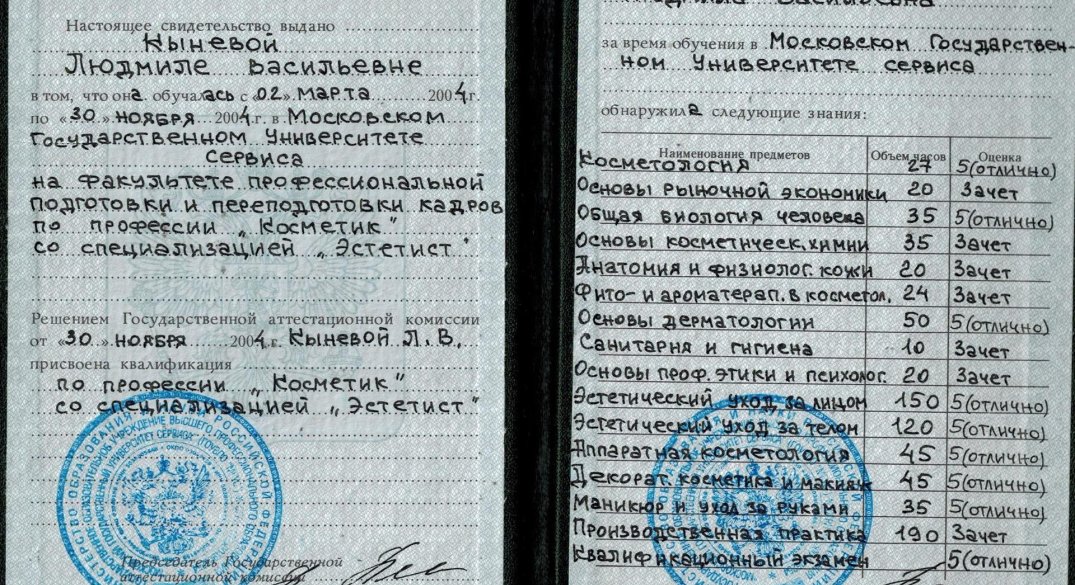 Настоящее свидетельство выдано
Кыневой
Людмиле Васильевне
в том, что она обучалась с «02» марта 2004 г.
по «30» ноября 2004 г. в Московском
Государственном Университете
Сервиса
на факультете профессиональной
подготовки и переподготовки кадров
по профессии „Косметик"
со специализацией „Эстетист"
Решением Государственной аттестационной комиссии
от «30» ноября 2004 г. Кыневой Л.В.
присвоена квалификация
по профессии „Косметик"
со специализацией „Эстетист"
Председатель Государственной
аттестационной комиссии
за время обучения в Московском Государствен-
ном Университете сервиса
обнаружила следующие знания:
Наименование предметов Объем часов Оценка
Косметология 27 5(отлично)
Основы рыночной экономики 20 Зачет
Общая биология человека 35 5(отлично)
Основы косметическ. химии 35 Зачет
Анатомия и физиолог. кожи 20 Зачет
Фито- и ароматерап. в косметол. 24 Зачет
Основы дерматологии 50 5(отлично)
Санитария и гигиена 10 Зачет
Основы проф. этики и психолог. 20 Зачет
Эстетический уход за лицом 150 5(отлично)
Эстетический уход за телом 120 5(отлично)
Аппаратная косметология 45 5(отлично)
Декорат. косметика и макияж 45 5(отлично)
Маникюр и уход за руками 35 5(отлично)
Производственная практика 190 Зачет
Квалификационный экзамен 5(отлично)